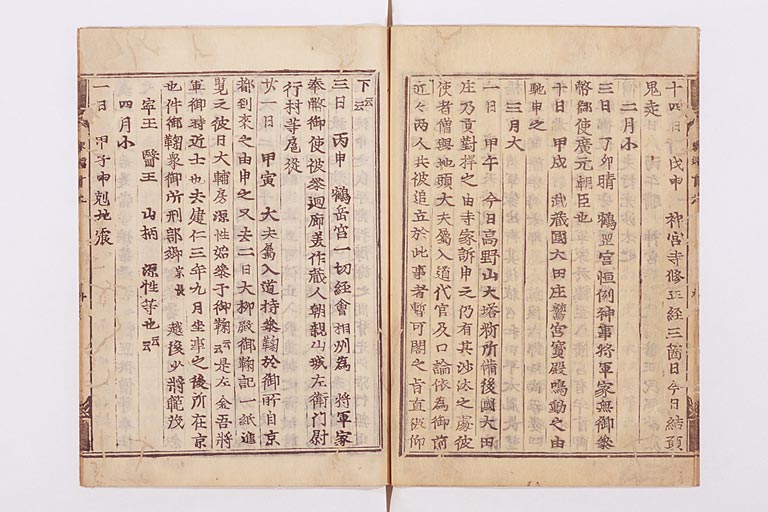 十四日 戊申 神宮寺修正経三箇日今日結願
鬼走
二月小
三日 丁卯晴 鶴岳宮恒例神事将軍家無御参
幣御使廣元朝臣也
十日 甲戌 武蔵國大田庄鷲宮寳殿鳴動之由
馳申之
三月大
一日 甲午 今日高野山大塔新所備後國大田
庄乃貢對捍之由寺家訴申之仍有其沙汰之處彼
使者僧與地頭大夫屬入道代官及口論依為御前
近々両人共被追立於此事者暫可閣之旨直被仰
下云云
三日 丙申 鶴岳宮一切經會相州為将軍家
奉幣御使被参廻廊美作蔵人朝親山城左衛門尉
行村等扈従
廿一日 甲寅 大夫屬入道持参鞠於御所自京
都到来之由申之又去二日大柳殿御鞠記一紙進
覧之彼日大輔房源性始参于御鞠云云是左金吾将
軍御時近士也去建仁三年九月坐事之後所在京
也件御鞠衆御所刑部卿宗長 越後少将範茂
寧王 醫王 山柄 源性等也云云
四月小
一日 甲子申剋地震